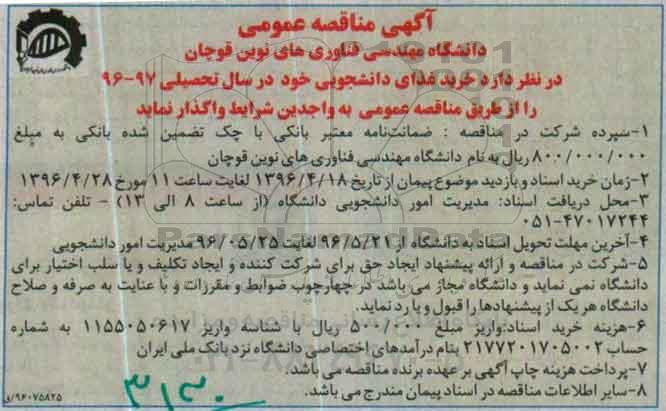 آگهی مناقصه عمومی
دانشگاه مهندسی فناوری های نوین قوچان
در نظر دارد خرید غذای دانشجویی خود در سال تحصیلی ۹۷-۹۶
را از طریق مناقصه عمومی به واجدین شرایط واگذار نماید
۱-سپرده شرکت در مناقصه : ضمانت‌نامه معتبر بانکی یا چک تضمین شده بانکی به مبلغ
۸۰۰/۰۰۰/۰۰۰ ریال به نام دانشگاه مهندسی فناوری های نوین قوچان
۲-زمان خرید اسناد و بازدید موضوع پیمان از تاریخ ۱۳۹۶/۴/۱۸ لغایت ساعت ۱۱ مورخ ۱۳۹۶/۴/۲۸
۳-محل دریافت اسناد: مدیریت امور دانشجویی دانشگاه (از ساعت ۸ الی ۱۳) - تلفن تماس:
۰۵۱-۴۷۰۱۷۲۴۴
۴-آخرین مهلت تحویل اسناد به دانشگاه از ۹۶/۵/۲۱ لغایت ۹۶/۰۵/۲۵ مدیریت امور دانشجویی
۵-شرکت در مناقصه و ارائه پیشنهاد ایجاد حق برای شرکت کننده و ایجاد تکلیف و یا سلب اختیار برای
دانشگاه نمی نماید و دانشگاه مجاز می باشد در چهارچوب ضوابط و مقررات و با عنایت به صرفه و صلاح
دانشگاه هر یک از پیشنهادها را قبول و یا رد نماید.
۶-هزینه خرید اسناد:واریز مبلغ ۵۰۰/۰۰۰ ریال با شناسه واریز ۱۱۵۵۰۵۰۶۱۷ به شماره
حساب ۲۱۷۷۲۰۱۷۰۵۰۰۲ بنام درآمدهای اختصاصی دانشگاه نزد بانک ملی ایران
۷-پرداخت هزینه چاپ آگهی بر عهده برنده مناقصه می باشد.
۸-سایر اطلاعات مناقصه در اسناد پیمان مندرج می باشد.
/۹۶۰۷۵۸۲۵